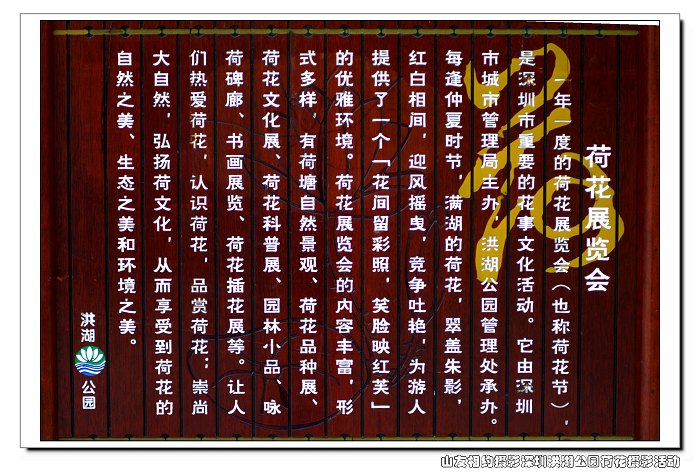 荷花展览会
一年一度的荷花展览会(也称荷花节),
是深圳市重要的花事文化活动。它由深圳
市城市管理局主办,洪湖公园管理处承办。
每逢仲夏时节,满湖的荷花,翠盖朱影,
红白相间,迎风摇曳,竞争吐艳,为游人
提供了一个「花间留彩照,笑脸映红芙」
的优雅环境。荷花展览会的内容丰富,形
式多样,有荷塘自然景观、荷花品种展、
荷花文化展、荷花科普展、园林小品、咏
荷碑廊、书画展览、荷花插花展等。让人
们热爱荷花,认识荷花,品赏荷花;崇尚
大自然,弘扬荷文化,从而享受到荷花的
自然之美、生态之美和环境之美。
洪湖公园
山友相约摄影深圳洪湖公园荷花摄影活动